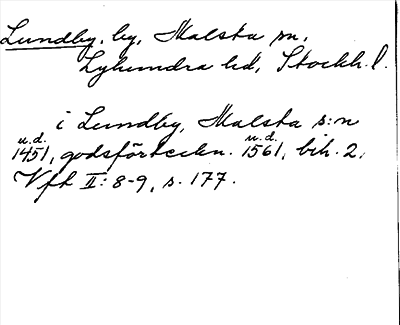 Lundby, by, Malsta sn,
Lyhundra hd, Stockh. l.
i Lundby, Malsta s:n
u.d. u.d.
1451, godsförteckn. 1561, bih. 2,
Vfh II: 8-9, s. 177.